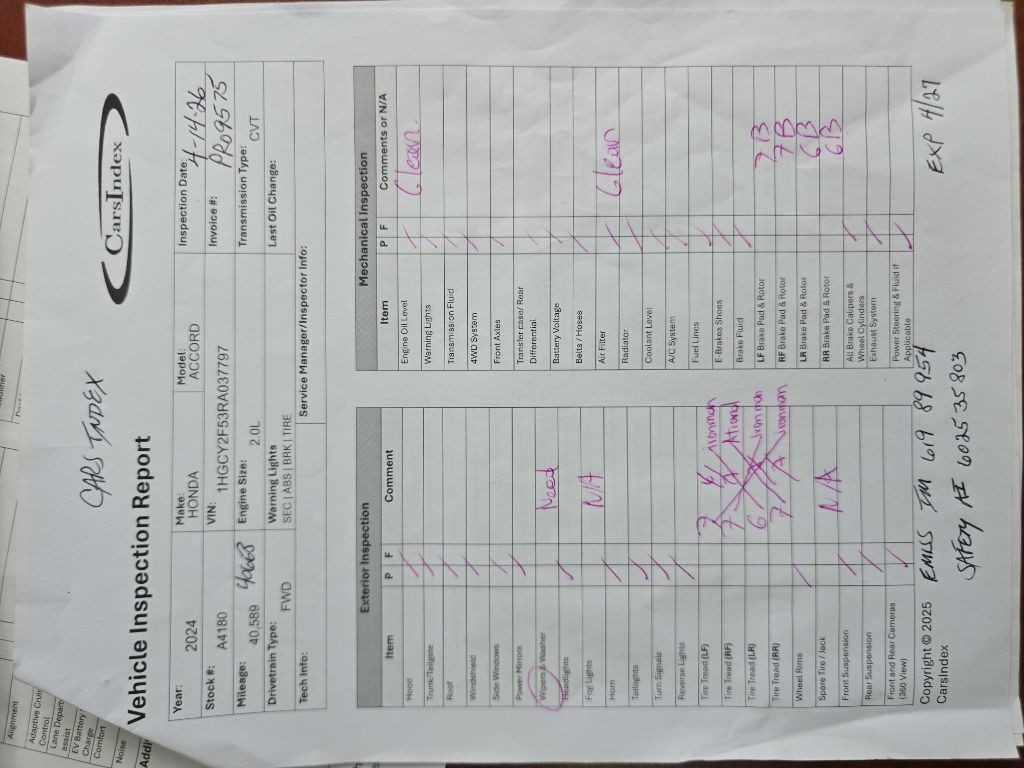 CARS INDEX
CARSINDEX
Vehicle Inspection Report
Year: 2024
Make: HONDA
Model: ACCORD
Inspection Date: 4-14-26
Stock #: A4180
VIN: 1HGCY2F53RA037797
Invoice #: PR09575
Mileage: 40,589 40668
Engine Size: 2.0L
Transmission Type: CVT
Drivetrain Type: FWD
Warning Lights
SEC | ABS | BRK | TIRE
Last Oil Change:
Tech Info:
Service Manager/Inspector Info:
Exterior Inspection
Item P F Comment
Hood
Trunk/Tailgate
Roof
Windshield
Side Windows
Power Mirrors
Wipers & Washer Need
Headlights
Fog Lights N/A
Horn
Taillights
Turn Signals
Reverse Lights
Tire Tread (LF) 7 Ironman
Tire Tread (RF) 7
Tire Tread (LR) 6 Ironman
Tire Tread (RR) 7 Ironman
Wheel Rims
Spare Tire / Jack N/A
Front Suspension
Rear Suspension
Front and Rear Cameras
(360 View)
Mechanical Inspection
Item P F Comments or N/A
Engine Oil Level Clean
Warning Lights
Transmission Fluid
4WD System
Front Axles
Transfer case/ Rear
Differential
Battery Voltage
Belts / Hoses
Air Filter Clean
Radiator
Coolant Level
A/C System
Fuel Lines
E-Brakes Shoes
Brake Fluid
LF Brake Pad & Rotor 7 B
RF Brake Pad & Rotor 7 B
LR Brake Pad & Rotor 6 B
RR Brake Pad & Rotor 6 B
All Brake Calipers &
Wheel Cylinders
Exhaust System
Power Steering & Fluid if
Applicable
Copyright © 2025
CarsIndex
EMISS IM 619 89954 EXP 4/27
SAFETY AI 602535803
Alignment
Control
EV Battery
Charge
Comfort
Noise